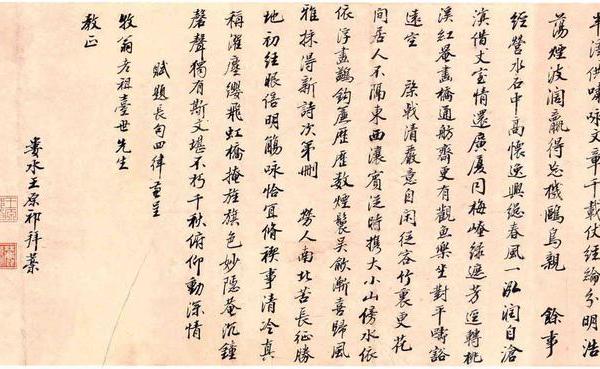 供嘯咏文章千載仗經綸分明浩
蕩煙波闊贏得忘機鷗鳥親 餘事
經營水石中高懷逸興總春風一泓闊自滄
溟借丈室情還廣廈同梅嶂綠遮芳逕轉桃
溪紅菴畫橋通舫齋更有觀魚樂坐對平疇豁
遠空 棨戟清嚴意自閒從容竹裏更花
間居人不隔東西瀼賓從時攜大小山傍水依
依浮畫鷁鉤簾歷歷數煙鬟吳歈漸喜歸風
雅採得新詩次第刪 勞人南北苦長征勝
地初經眼倍明觴咏恰宜脩禊事清泠真
稱濯塵纓飛虹橋掩旌旗色妙隱菴沉鐘
磬聲獨有斯文堪不朽千秋俯仰動深情
賦題長句四律呈
牧翁老祖臺世先生
教正
婁水王原祁拜藁